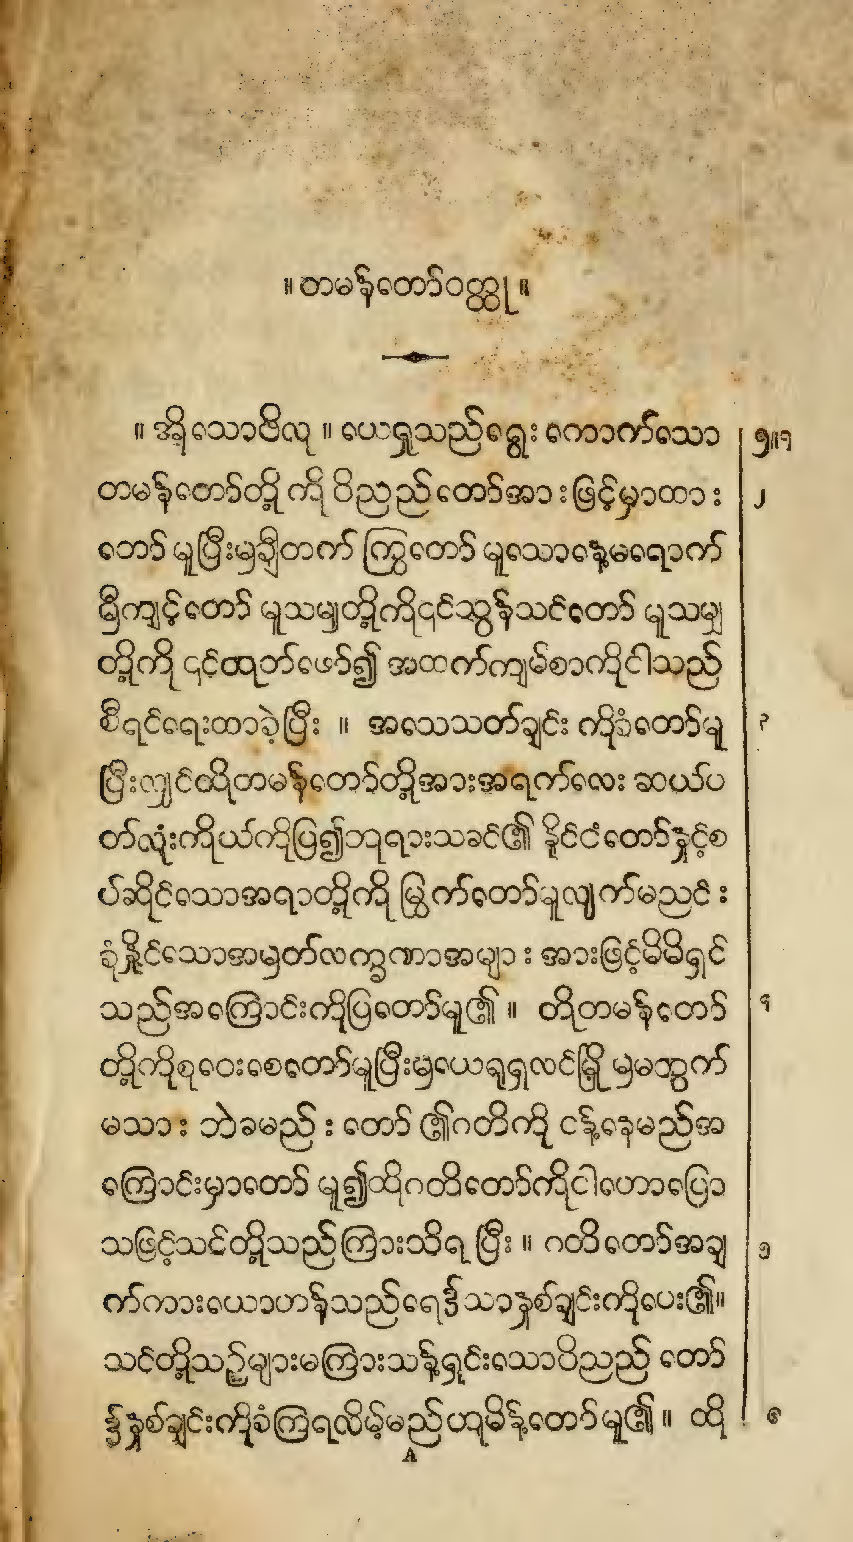 ။ တမန်တော်ဝတ္ထု ။
။ အို သောဖိလု ။ ယေရှုသည်ရွေး ကောက်သော ၅။၁
တမန်တော်တို့ ကို ဝိညည်တော်အား ဖြင့်မှာထား ၂
တော် မူပြီးမှချီတက် ကြွတော် မူသောနေ့မရောက်
မှီကျင့်တော် မူသမျှတို့ကို၎င်သွန်သင်တော် မူသမျှ
တို့ကို ၎င်ထုတ်ဖော်၍ အထက်ကျမ်စာကိုငါသည်
စီရင်ရေးထာခဲ့ပြီး ။ အသေသတ်ချင်း ကိုခံတော်မူ ၃
ပြီးလျှင်ထိုတမန်တော်တို့အားအရက်လေး ဆယ်ပ
တ်လုံးကိုယ်ကိုပြ၍ဘုရားသခင်၏ နိုင်ငံတော်နှင့်စ
ပ်ဆိုင်သောအရာတို့ကို မြွက်တော်မူလျက်မညင်း
ခုံနိုင်သောအမှတ်လက္ခဏာအများ အားဖြင့်မိမိရှင်
သည်အကြောင်းကိုပြတော်မူ၏ ။ တိုတမန်တော် ၄
တို့ကိုစုဝေးစေတော်မူပြီးမှယေရုရှလင်မြို့ မှမထွက်
မသား ဘဲခမည်း တော် ၏ဂတိကို ငန့်နေမည်အ
ကြောင်းမှာတော် မူ၍ထိုဂတိတော်ကိုငါဟောပြော
သဖြင့်သင်တို့သည်ကြားသိရ ပြီး ။ ဂတိတော်အချ ၅
က်ကားယောဟန်သည်ရေ၌သာနှစ်ချင်းကိုပေး၏။
သင်တို့သည်များမကြားသန့်ရှင်းသောဝိညည် တော်
၌နှစ်ချင်းကိုခံကြရလိမ့်မည်ဟုမိန့်တော်မူ၏ ။ ထို ၆
A